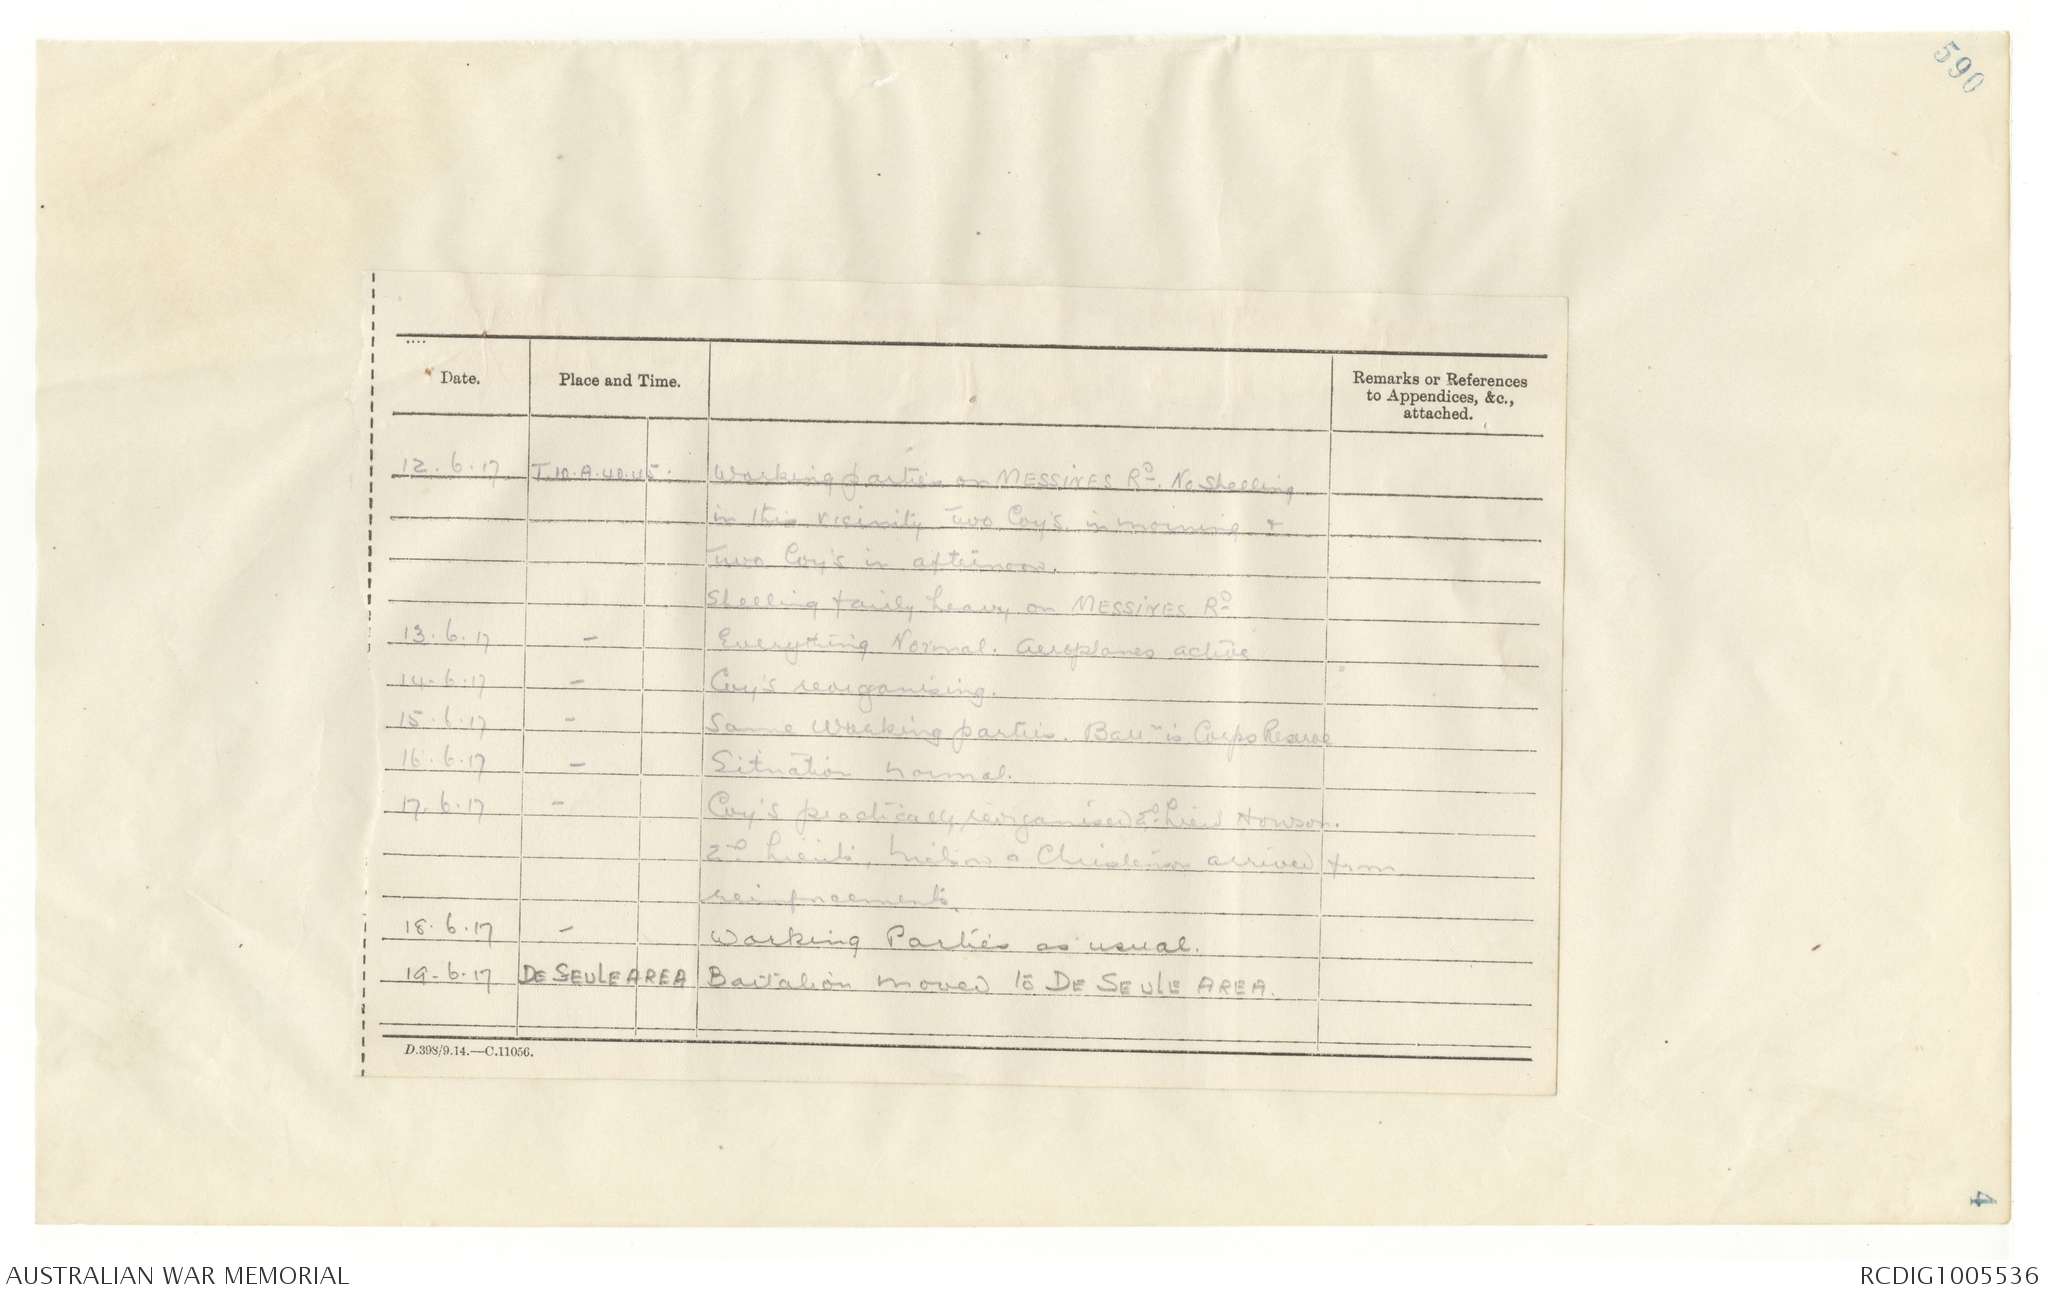 590
Date.
Place and Time.
Remarks or References
to Appendices, &c.,
attached.
12.6.17 T.10.A.40.45. Working parties on MESSINES Rd. No Shelling
in this vicinity Two Coy's. in morning &
Two Coy's in afternoon.
Shelling fairly heavy on MESSINES Rd
13.6.17 - Everything Normal. Aeroplanes active
14-6-17 - Coy's reorganising.
15.6.17 - Same Working parties. Battn is Corps Reserve
16.6.17 - Situation normal.
17.6.17 - Coy's practically reorganised 2nd Lieut Howson.
2nd Lieuts, & arrived from
reinforcements.
18.6.17 - Working Parties as usual.
19-6-17 DE SEULE AREA Battalion moved to DE SEULE AREA.
D.398/9.14.—C.11056.
4
AUSTRALIAN WAR MEMORIAL
RCDIG1005536